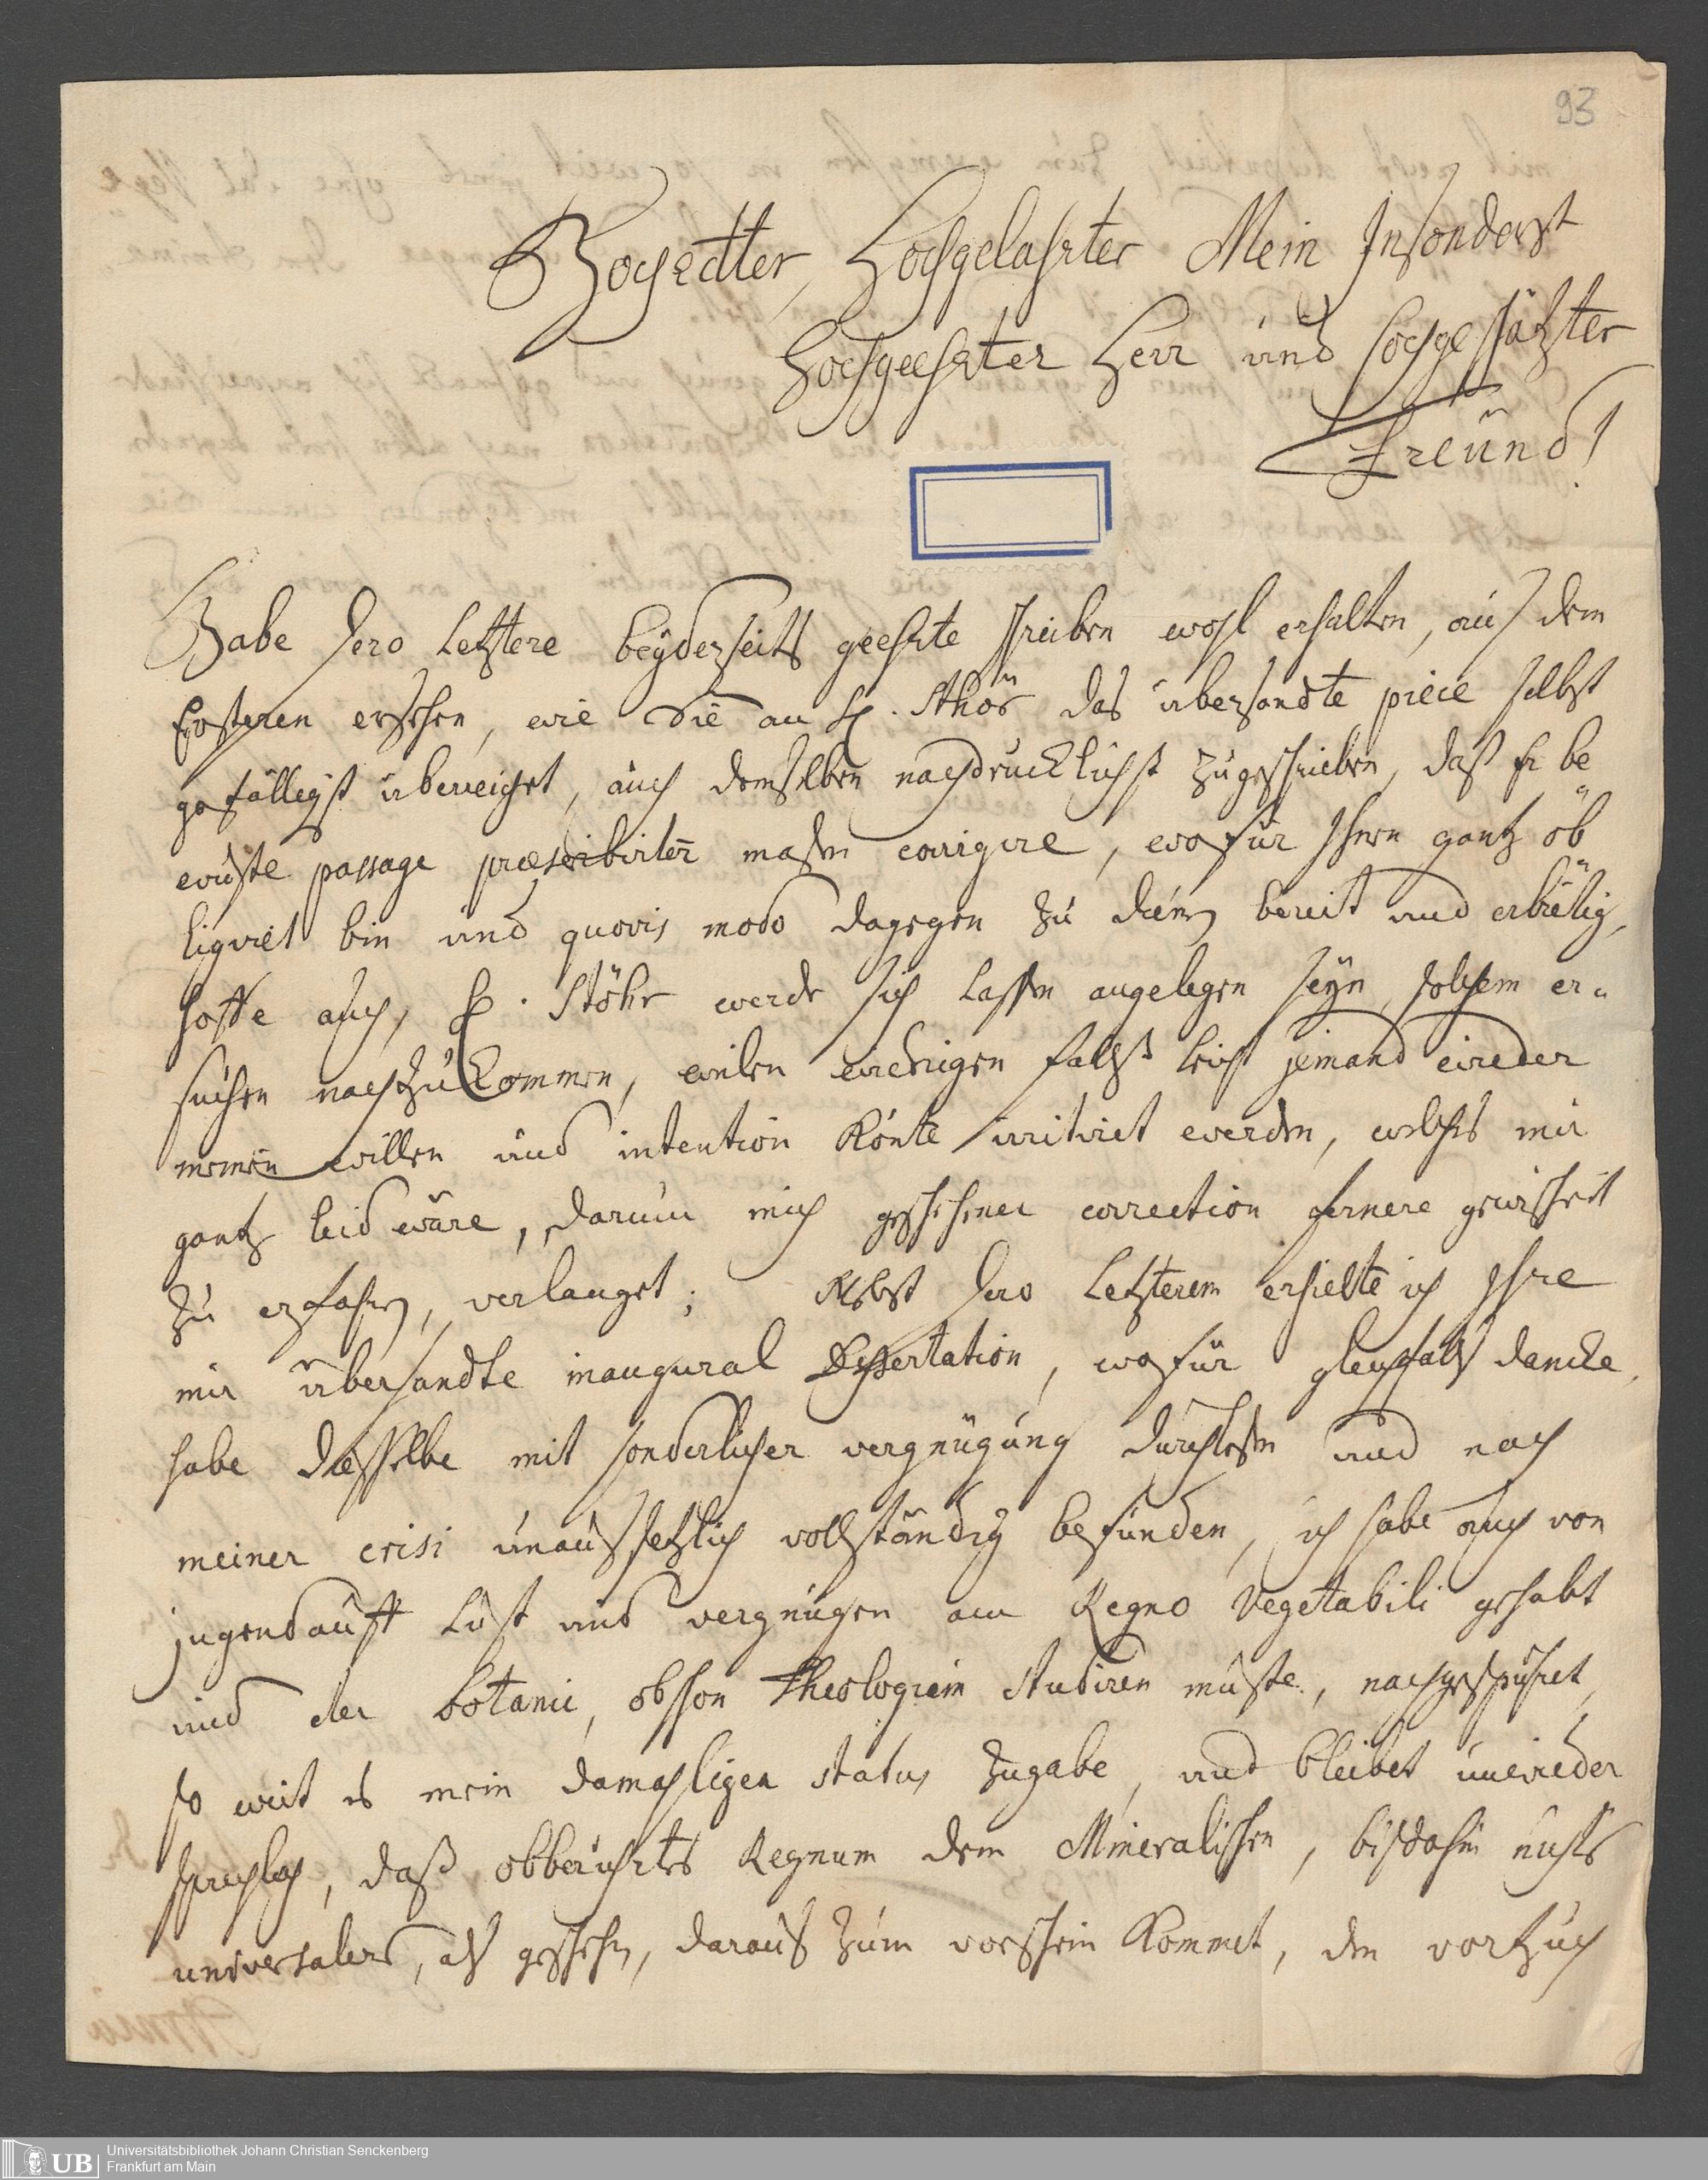 93
Hochedler, Hochgelahrter Mein Insonders
Hochgeehrter Herr und hochgeschätzter
Freünd!
Habe dero letztere beyderseits geehrte schreiben wohl erhalten, auß dem
Ersteren ersehen, wie Sie an H. Sthör das übersandte piece selbst
gefälligst überreichet, auch demselben nachdrücklichst zugeschrieben, daß Er be
wuste passage præscribirter maßen corrigire, wofür Ihnen gantz ob
ligiret bin und quovis modo dagegen zu dienen bereit und erbietig,
hoffe auch, H. Stöhr werde sich lassen angelegen seyn, solchem er-
suchen nachzukommen, weilen widrigen falß leicht jemand wieder
meinen willen und intention könte irritiret werden, welches mir
gantz leid wäre, darum mich geschehener correction fernere gewisheit
zu erfahren, verlanget; Nebst dero Letzterem erhielte ich Ihre
mir übersandte inaugural Dissertation, wofür gleichfalß dancke,
habe dieselbe mit sonderlicher vergnügung durchlesen und nach
meiner crisi unaußsetzlich vollständig befunden, ich habe auch von
jugend auff Lust und vergnügen am Regno Vegetabili gehabt
und der botanic, obschon Theologiam studiren muste, nachgespühret,
so weit es mein damahliger status zugabe, und bleibet unwieder
sprechlich, daß obberührtes Regnum dem Mineralischen, bißdahin nichts
universalers, alß geschehen, darauß zum vorschein kommet, den vorzug
UB
Universitätsbibliothek Johann Christian Senckenberg
Frankfurt am Main